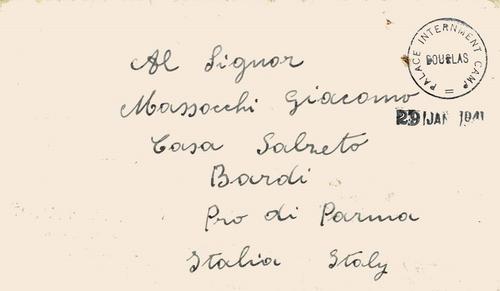 Al Signor
Massocchi Giacomo
Casa Salneto
Bardi
Pro di Parma
Italia Italy
PALACE INTERNMENT CAMP
DOUGLAS
29 JAN 1941